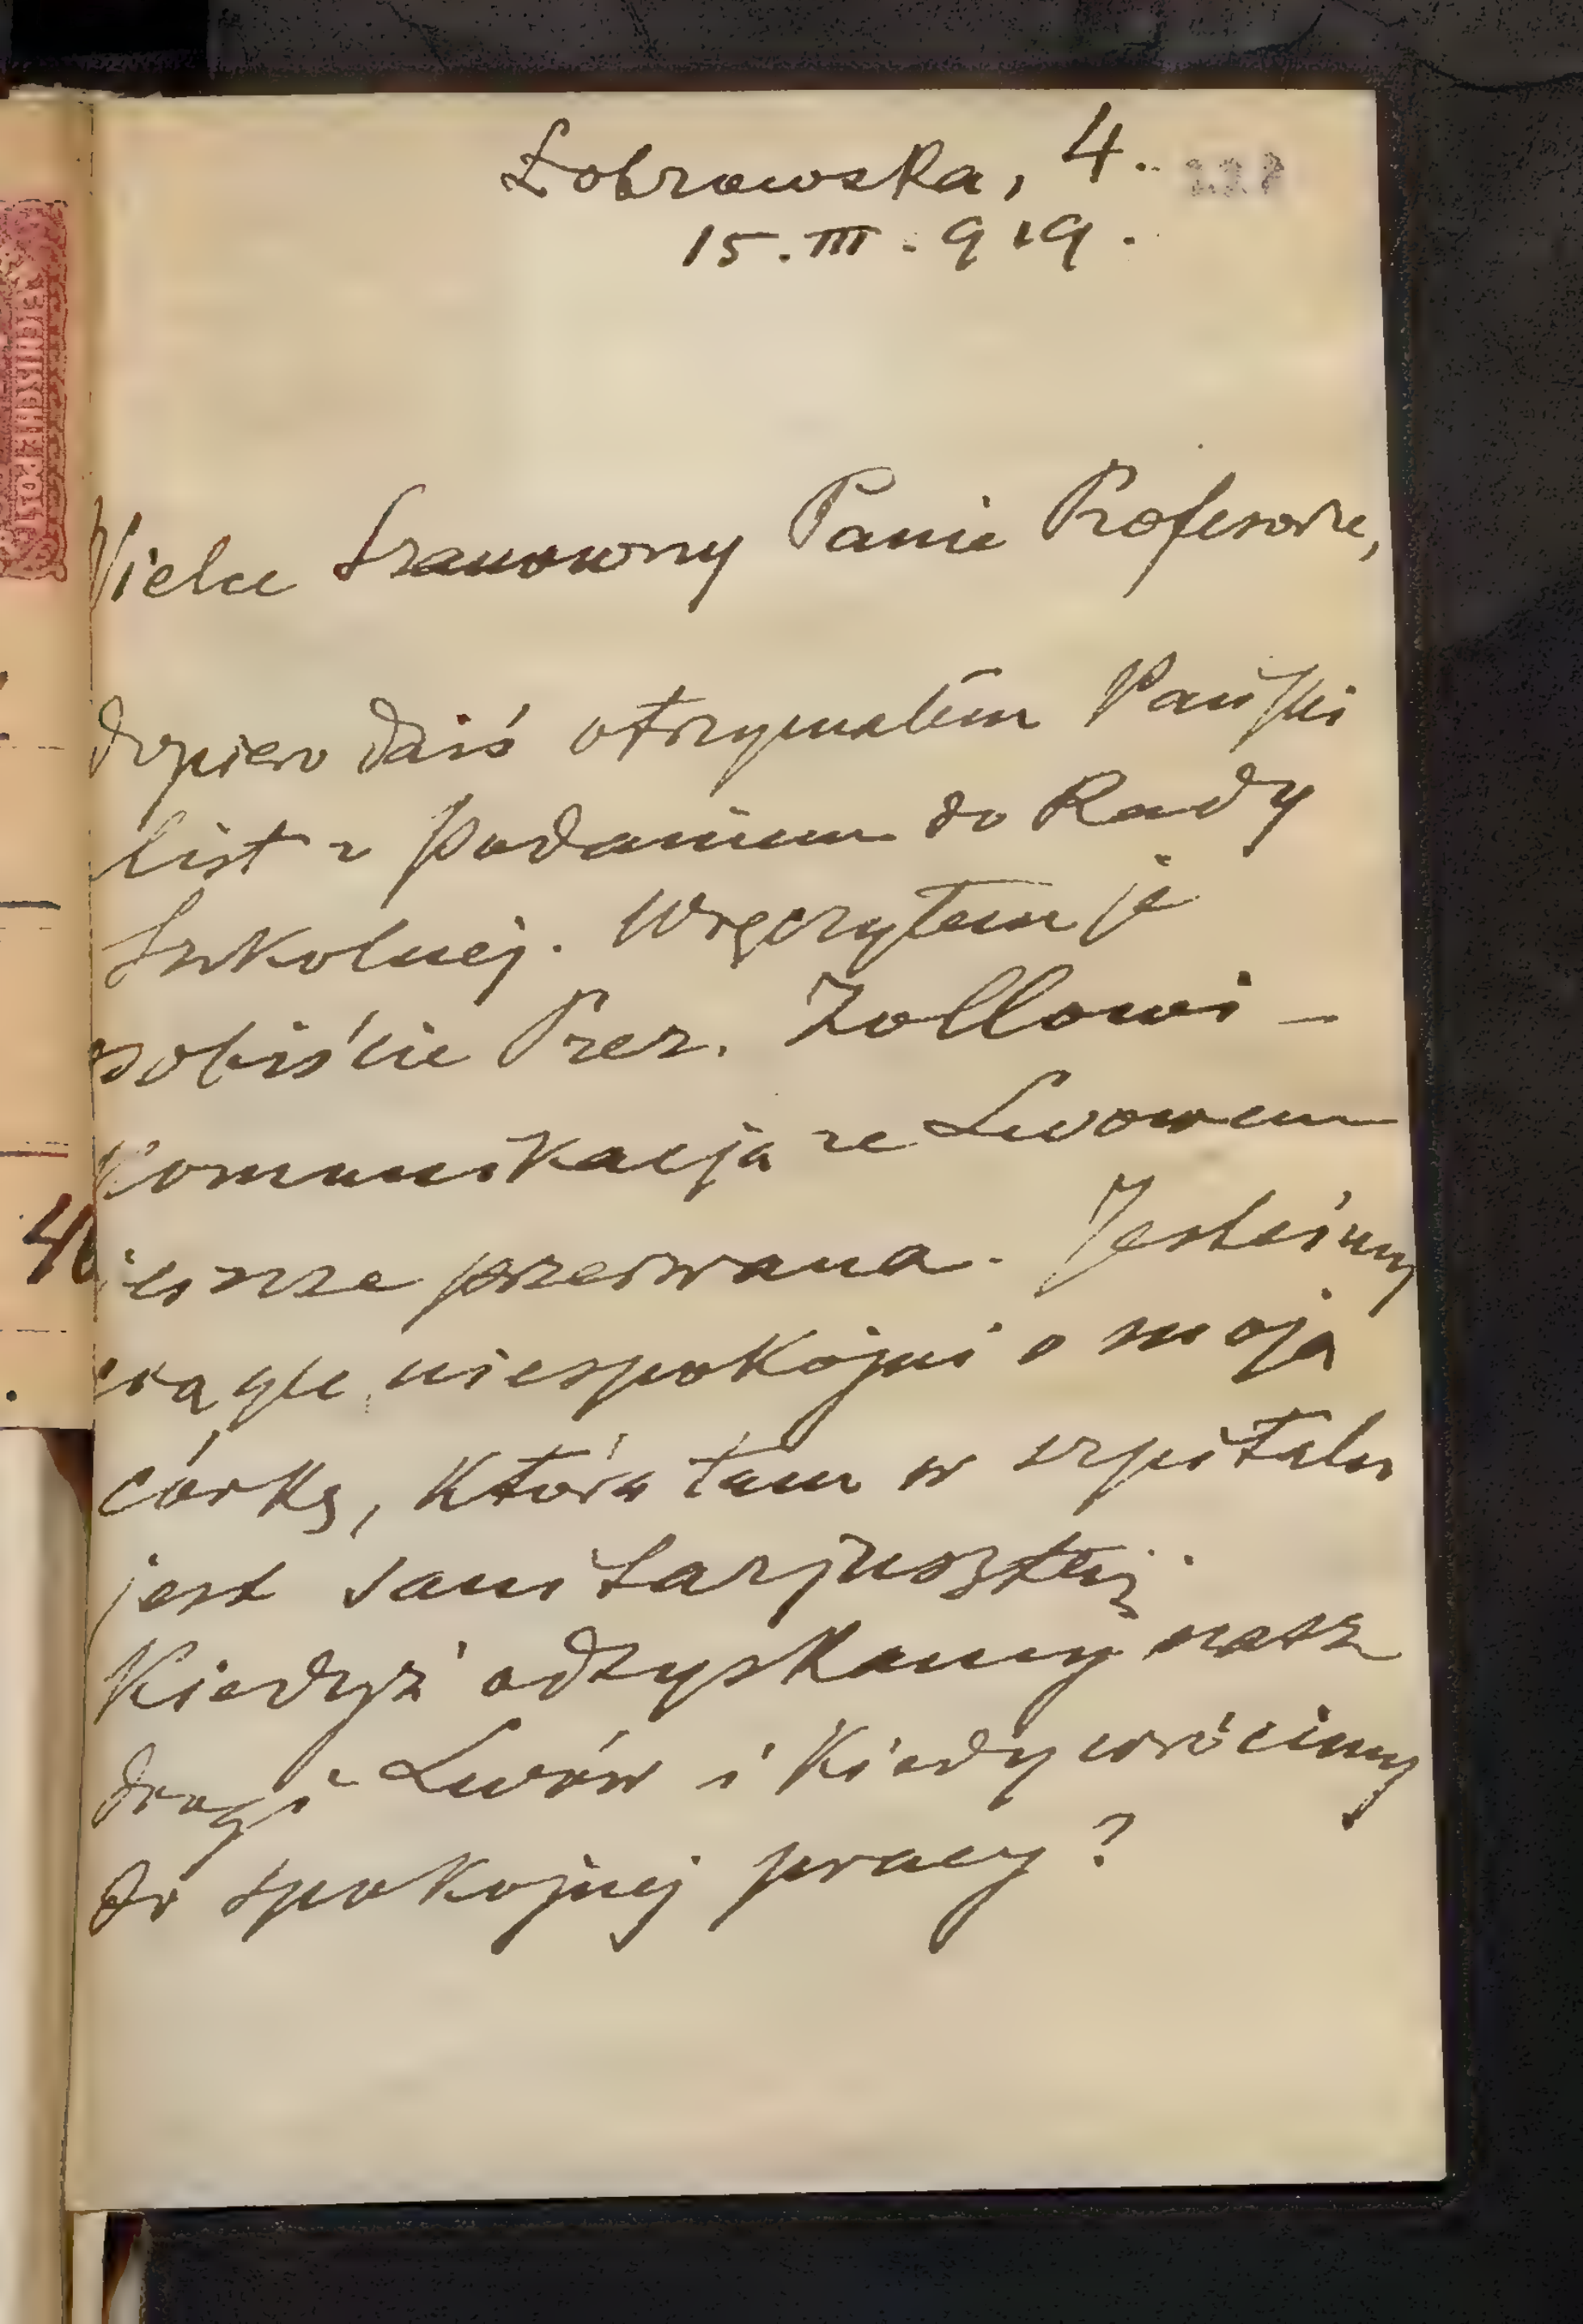 Łobzowska, 4.
15.III.919.
Wielce Szanowny Panie Profesorze,
dopiero dziś otrzymałem Pański
list z podaniem do Rady
Szkolnej. Wręczyłem je
osobiście Prez. Zollowi –
Komunikacja ze Lwowem
jeszcze przerwana. Jesteśmy
ciągle niespokojni o moją
córkę, która tam w szpitalu
jest sanitarjuszką.
Kiedyż odzyskamy nasz
drogi Lwów i kiedy wrócimy
do spokojnej pracy?